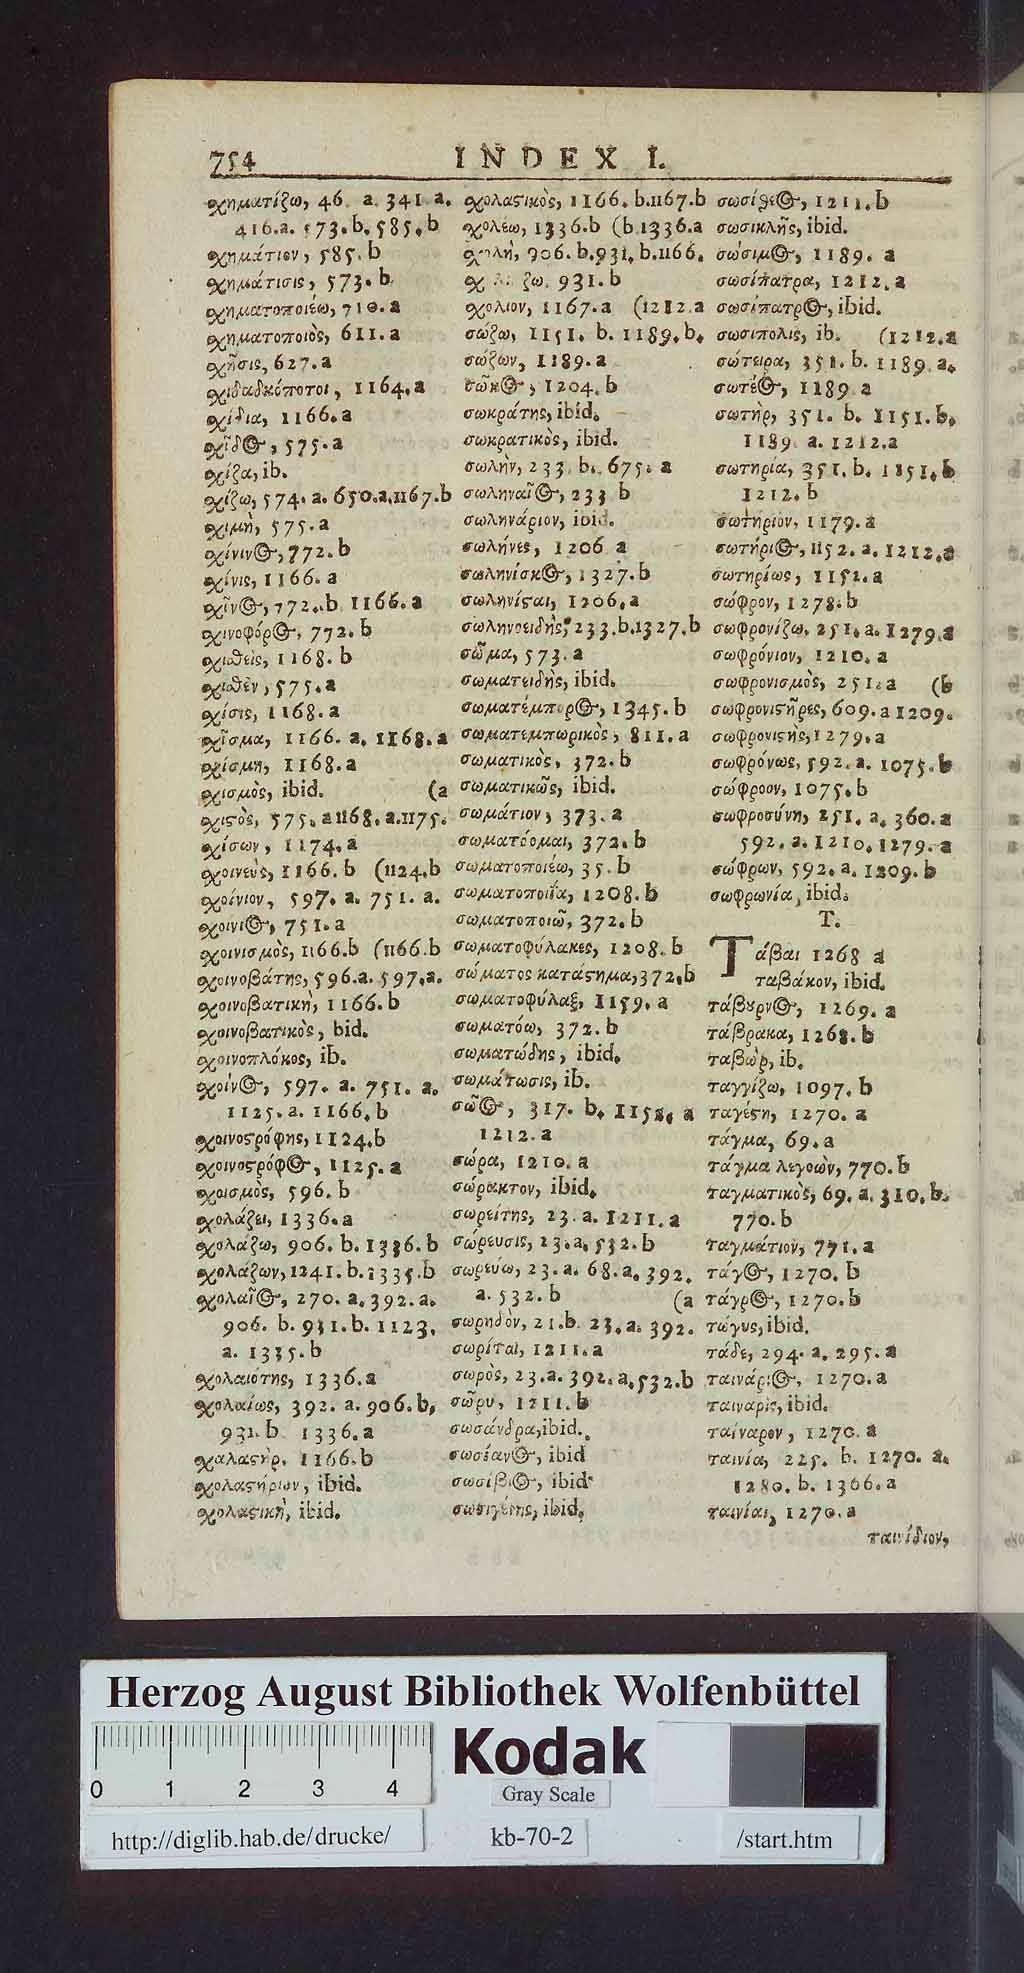 754 INDEX I.
σχηματίζω, 46. a. 341. a.
416.a. 573.b. 585.b
σχημάτιον, 585.b
σχημάτισις, 573.b
σχηματοποιέω, 710.a
σχηματοποιὸς, 611.a
σχῆσις, 627.a
σχιδαδκόποτοι, 1164.a
σχίδια, 1166.a
σχῖδος, 575.a
σχίζα, ib.
σχίζω, 574. a. 650.a.1167.b
σχιμὴ, 575.a
σχίνινος, 772.b
σχίνις, 1166.a
σχῖνος, 772.b 1166.a
σχινοφόρος, 772.b
σχισθεὶς, 1168.b
σχισθὲν, 575.a
σχίσις, 1168.a
σχῖσμα, 1166. a. 1168.a
σχίσμη, 1168.a
σχισμὸς, ibid. (a
σχιστὸς, 575. a 1168. a.1175.
σχίσων, 1174.a
σχοινεὺς, 1166.b (1124.b
σχοίνιον, 597. a. 751. a.
σχοινις, 751.a
σχοινισμὸς, 1166.b (1166.b
σχοινοβάτης, 596.a. 597.a.
σχοινοβατικὴ, 1166.b
σχοινοβατικὸς, bid.
σχοινοπλόκος, ib.
σχοίνος, 597. a. 751. a.
1125.a. 1166.b
σχοινοστρόφης, 1124.b
σχοινοστρόφος, 1125.a
σχοισμὸς, 596.b
σχολάζει, 1336.a
σχολάζω, 906. b. 1336.b
σχολάζων, 1241. b. 1335.b
σχολαῖος, 270. a. 392. a.
906. b. 931. b. 1123.
a. 1335.b
σχολαιότης, 1336.a
σχολαίως, 392. a. 906.b.
931.b 1336.a
σχαλαστὴρ, 1166.b
σχολαστήριον, ibid.
σχολαστικὴ, ibid.
σχολαστικὸς, 1166. b.1167.b
σχολέω, 1336.b (b.1336.a
σχολὴ, 906. b.931. b.1166.
ζω, 931.b
σχολιον, 1167.a (1212.a
σώζω, 1151. b. 1189.b.
σώζων, 1189.a
σῶκος, 1204.b
σωκράτης, ibid.
σωκρατικὸς, ibid.
σωλὴν, 233. b. 675. a
σωληναῖος, 233 b
σωληνάριον, ibid.
σωλήνες, 1206 a
σωληνίσκος, 1327.b
σωληνίσται, 1206.a
σωληνοειδὴς, 233.b.1327.b
σῶμα, 573.a
σωματειδὴς, ibid.
σωματέμπορος, 1345.b
σωματεμπωρικὸς, 811.a
σωματικὸς, 372.b
σωματικῶς, ibid.
σωμάτιον, 373.a
σωματόομαι, 372.b
σωματοποιέω, 35.b
σωματοποιΐα, 1208.b
σωματοποιῶ, 372.b
σωματοφύλακες, 1208.b
σώματος κατάστημα, 372.b
σωματοφύλαξ, 1159.a
σωματόω, 372.b
σωματώδης, ibid.
σωμάτωσις, ib.
σῶος, 317. b. 1152. a
1212.a
σώρα, 1210.a
σώρακτον, ibid.
σωρείτης, 23. a. 1211.a
σώρευσις, 23.a. 532.b
σωρεύω, 23.a. 68.a. 392.
a. 532.b (a
σωρηδὸν, 21.b. 23.a. 392.
σωρίται, 1211.a
σωρὸς, 23.a. 392.a.532.b
σῶρυ, 1211.b
σωσάνδρα, ibid.
σωσίανος, ibid
σωσίβιος, ibid
σωσιγένης, ibid.
σωσίθεος, 1211.b
σωσικλῆς, ibid.
σώσιμος, 1189. a
σωσίπατρα, 1212.a
σωσίπατρος, ibid.
σωσιπολις, ib. (1212.a
σώτειρα, 351. b. 1189.a.
σωτέος, 1189 a
σωτὴρ, 351. b. 1151.b.
1189. a. 1212.a
σωτηρία, 351. b. 1151.b
1212.b
σωτήριον, 1179.a
σωτήριος, 1152. a. 1212.a
σωτηρίως, 1152.a
σώφρον, 1278.b
σωφρονίζω, 251. a. 1279.a
σωφρόνιον, 1210.a
σωφρονισμὸς, 251.a (b
σωφρονιστῆρες, 609.a 1209.
σωφρονιστὴς, 1279.a
σωφρόνως, 592. a. 1075.b
σώφροον, 1075.b
σωφροσύνη, 251. a. 360.a
592. a. 1210. 1279. a
σώφρων, 592. a. 1209.b
σωφρωνία, ibid.
T.
Τάβαι 1268 a
ταβάκον, ibid.
τάβουρνος, 1269.a
τάβρακα, 1268.b
ταβὼρ, ib.
ταγγίζω, 1097.b
ταγέστη, 1270.a
τάγμα, 69.a
τάγμα λεγοιὼν, 770.b
ταγματικὸς, 69. a. 310.b.
770.b
ταγμάτιον, 771.a
τάγος, 1270.b
τάγρος, 1270.b
τώγυς, ibid.
τάδε, 294. a. 295.a
ταινάριος, 1270.a
ταιναρὶς, ibid.
ταίναρον, 1270.a
ταινία, 225. b. 1270. a.
1280. b. 1366.a
ταινίαι, 1270.a
ταινίδιον,
Herzog August Bibliothek Wolfenbüttel
0 1 2 3 4
Kodak
Gray Scale
http://diglib.hab.de/drucke/ kb-70-2 /start.htm